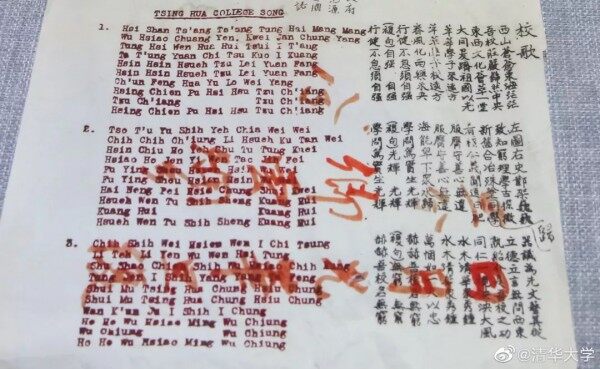 TSING HUA COLLEGE SONG
1. Hsi Shan Ts'ang Ts'ang Tung Hai Mang Mang
Wu Hsiao Chuang Yen, Kwei Jan Chung Yang
Tung Hsi Wen Hua Hui Tsui I T'ang
Ta T'ung Yuan Chi Tsu Kuo I Kuang
Hsin Hsin Hsueh Tzu Lei Yuan Fang
Hsin Hsin Hsueh Tzu Lei Yuan Fang
Ch'un Feng Hua Yu Lo Wei Yang
Hsing Chien Pu Hsi Hsu Tzu Ch'iang
Tzu Ch'iang Tzu Ch'iang
Hsing Chien Pu Hsi Hsu Tzu Ch'iang
2. Tso T'u Yu Shih Yeh Chia Wei Wei
Chih Chih Ch'iung Li Hsueh Ku Tan Wei
Hsin Chiu Ho Yeh Shu Tu Tung Kuei
Hai Neng Pei Hsia Chung
Hsueh Wen Tu Shih Sheng Kuang Hui
Kuang Hui Kuang Hui
Hsueh Wen Tu Shih Sheng Kuang Hui
3. Chih Shih Wei Hsien Wen I Chi Tsung
Li Teh Li Yen Wu Wen Hsi Tung
Shui Mu Tsing Hua Chung Hsiu Chung
Shui Mu Tsing Hua Chung Hsiu Chung
Wan K'un Ju I Shih I Chung
Ho Ho Wu Hsiao Ming Wu Chiung
Wu Chiung Wu Chiung
Ho Ho Wu Hsiao Ming Wu Chiung
校歌
西山蒼蒼東海茫茫
吾校莊嚴巋然中央
東西文化薈萃一堂
大同爰躋祖國以光
莘莘學子來遠方
莘莘學子來遠方
春風化雨樂未央
行健不息須自强
自强 自强
行健不息須自强
左圖右史鄴架巍巍
致知窮理學古探微
新舊合冶殊途同歸
服膺守善心無違
服膺守善心無違
海能卑下衆水歸
學問篤實生光輝
光輝 光輝
學問篤實生光輝
器識為先文藝其從
立德立言無問西東
水木清華衆秀鍾
水木清華衆秀鍾
萬悃如一矢以忠
赫赫吾校名無窮
無窮 無窮
赫赫吾校名無窮
歸
@清华大学